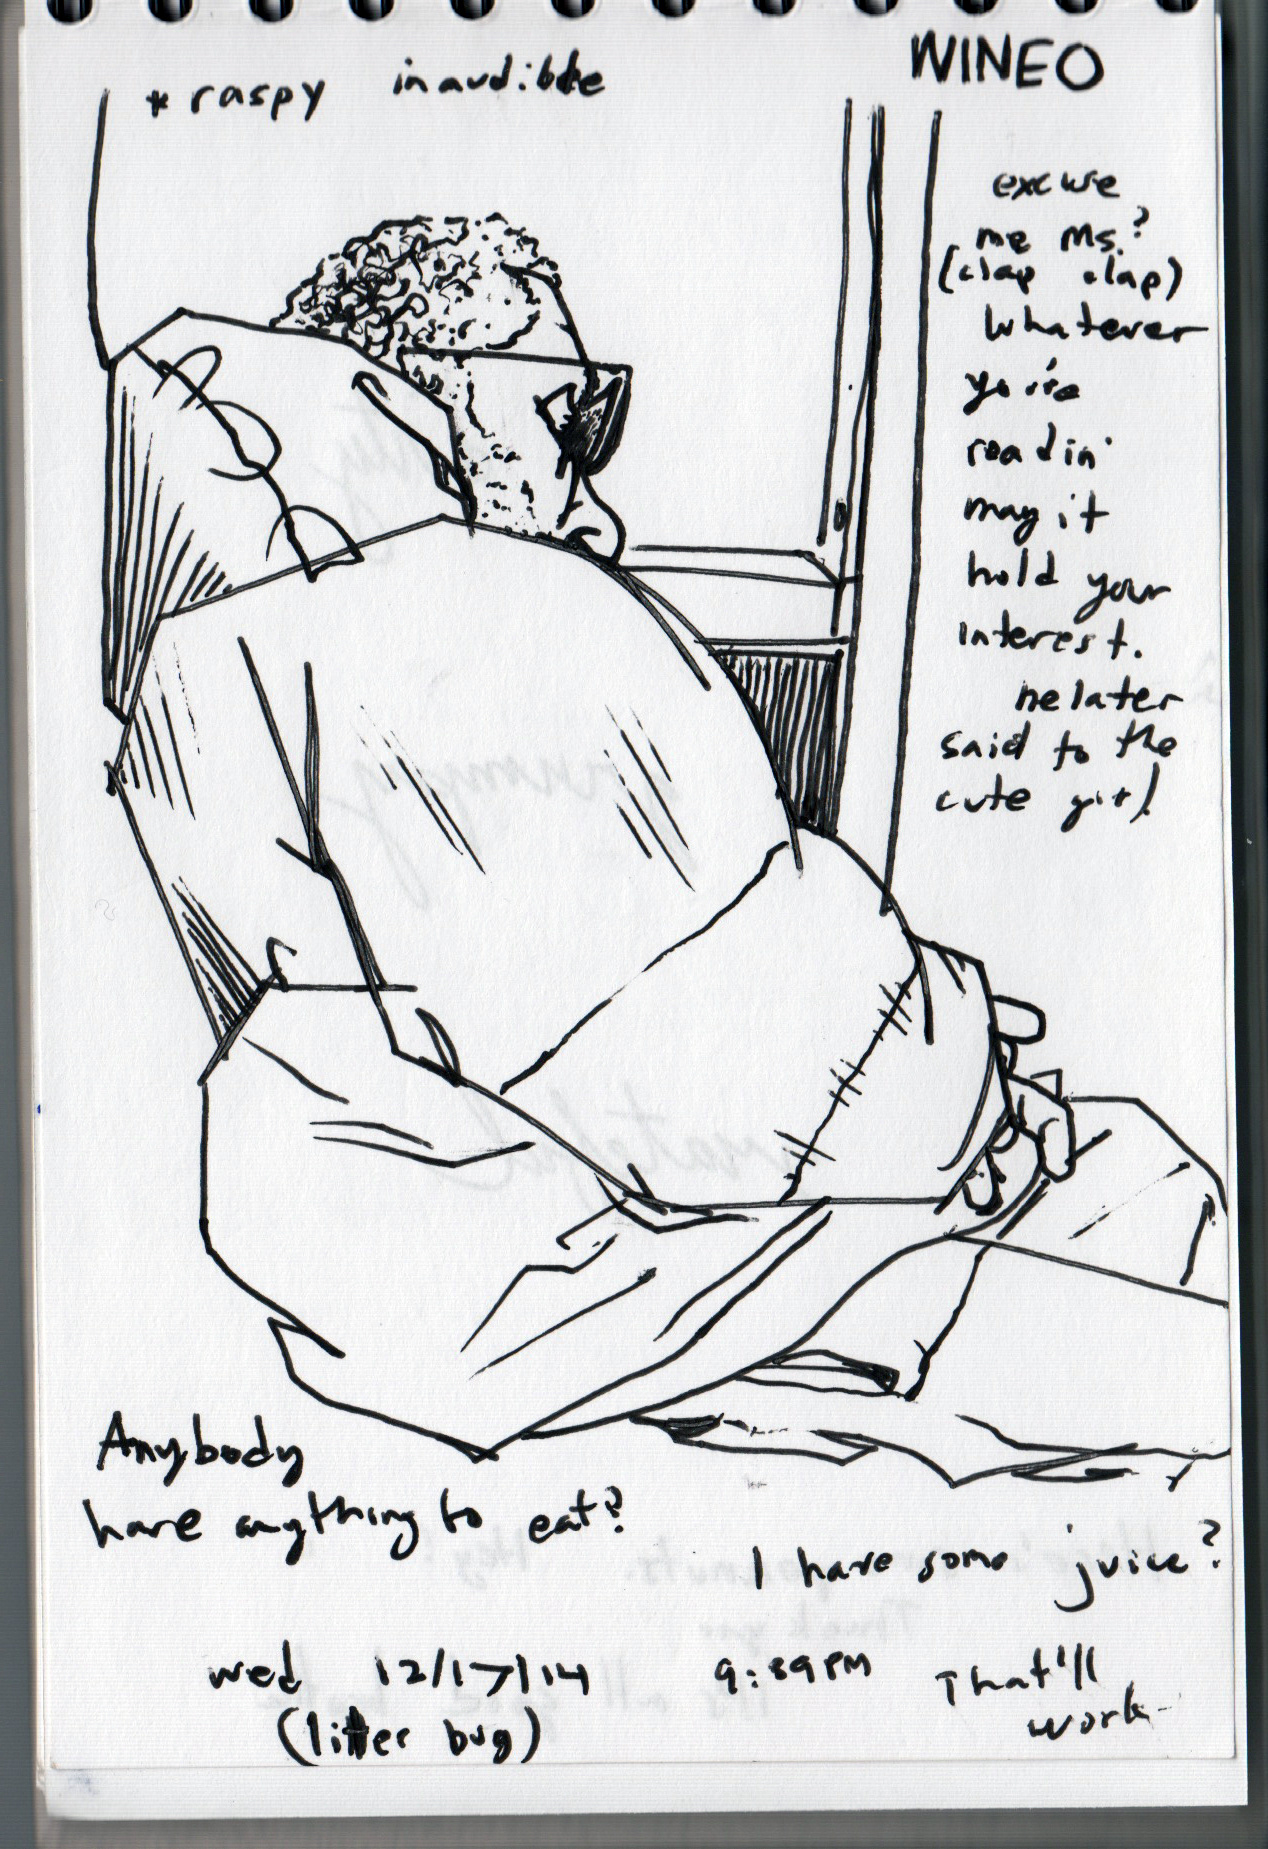 WINEO
* raspy inaudible
excuse
me Ms.?
(clap clap)
Whatever
you're
readin'
may it
hold your
interest.
he later
said to the
cute girl.
Anybody
have anything to eat?
I have some juice?
wed 12/17/14 9:39PM
(litter bug)
That'll
work